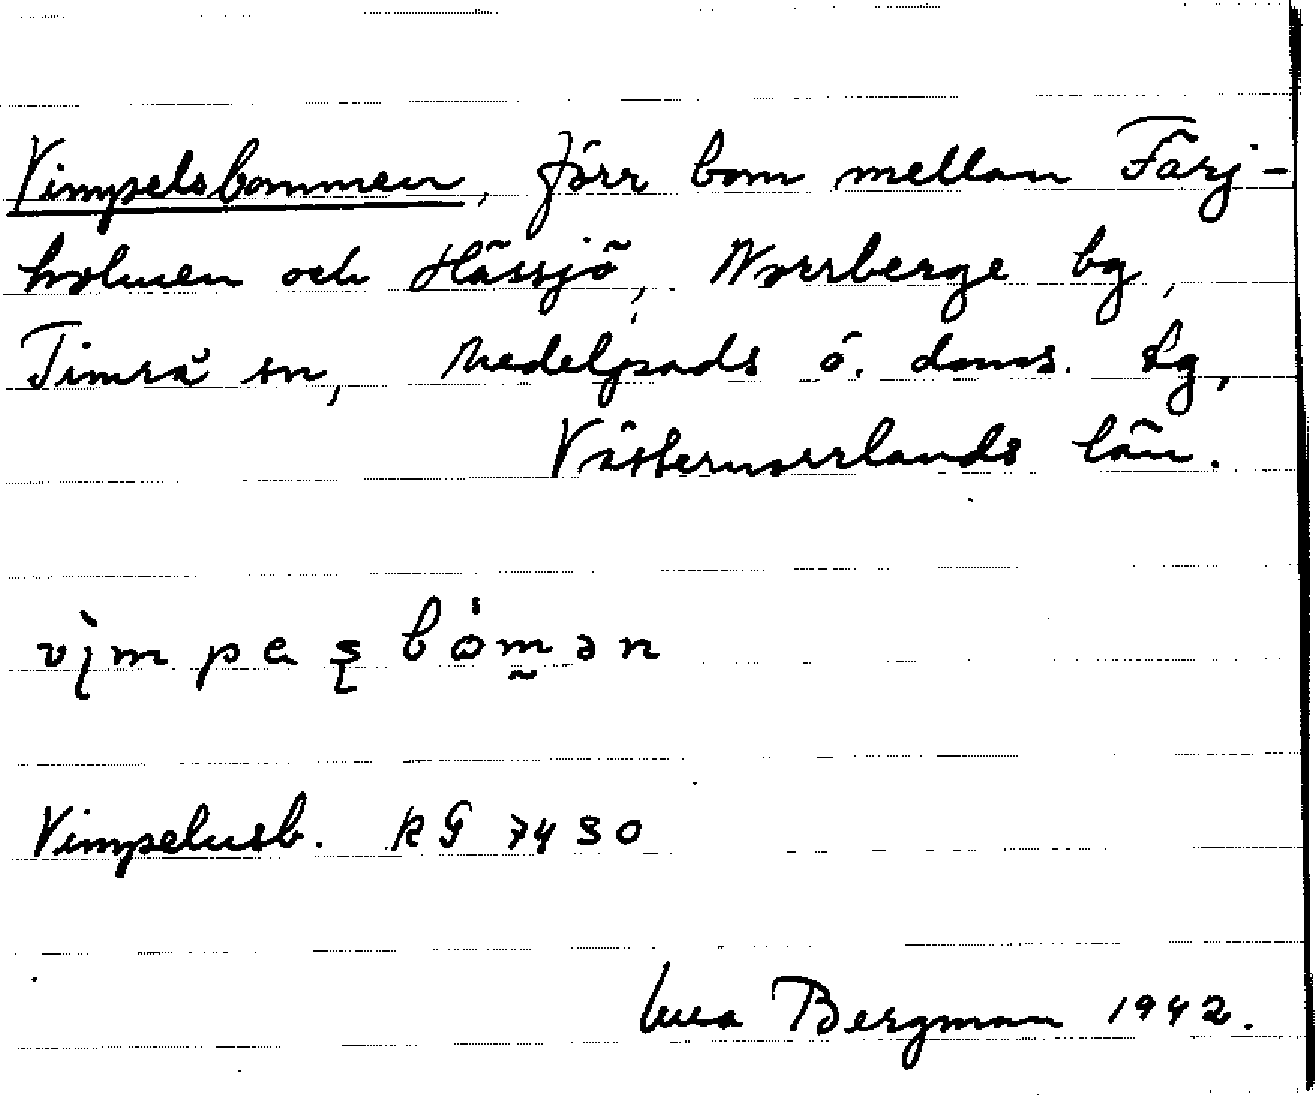 Vimpelsbommen, förr bom mellan Färj-
holmen och Hässjö, Norrberge bg,
Timrå sn, Medelpads ö. doms. lg,
Västernorrlands län.
vimpesbómən
Vimpelusb. RG 7430
Bergman 1942.